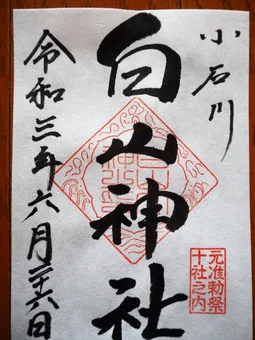 小石川
白山神社
元准勅祭
十社之内
令和三年六月二十六日